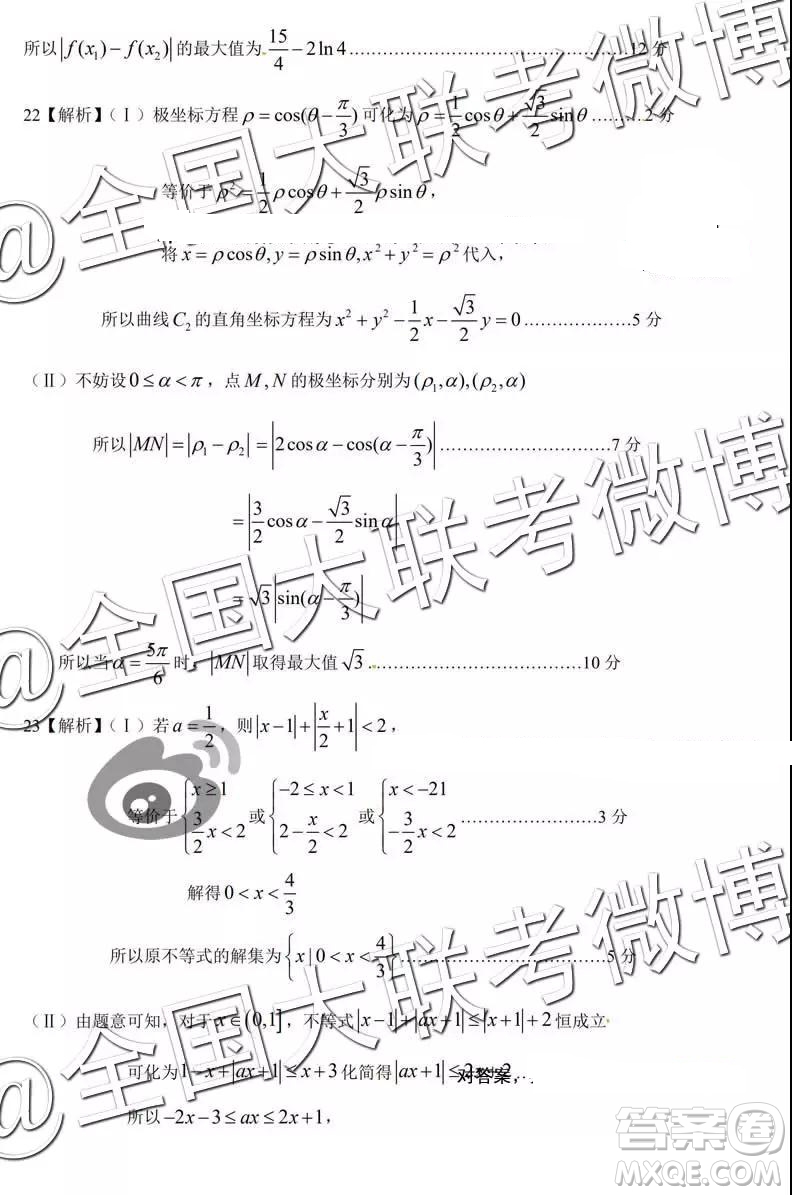 所以|f(x₁)−f(x₂)|的最大值为15/4−2ln4……………………………12分
22【解析】(Ⅰ)极坐标方程ρ=cos(θ−π/3)可化为ρ=1/2cosθ+√3/2sinθ………2分
等价于ρ²=1/2ρcosθ+√3/2ρsinθ，
将x=ρcosθ,y=ρsinθ,x²+y²=ρ²代入，
所以曲线C₂的直角坐标方程为x²+y²−1/2x−√3/2y=0…………………5分
(Ⅱ)不妨设0≤α<π，点M,N的极坐标分别为(ρ₁,α),(ρ₂,α)
所以|MN|=|ρ₁−ρ₂|=|2cosα−cos(α−π/3)|……………………………7分
=|3/2cosα−√3/2sinα|
=√3|sin(α−π/3)|
所以当α=5π/6时，|MN|取得最大值√3……………………………………10分
23【解析】(Ⅰ)若a=1/2，则|x−1|+|x/2+1|<2，
等价于{x≥1, 3/2x<2 或{−2≤x<1, 2−x/2<2 或{x<−21, −3/2x<2………………………3分
解得0<x<4/3
所以原不等式的解集为{x|0<x<4/3}……………………………………5分
(Ⅱ)由题意可知，对于x∈(0,1]，不等式|x−1|+|ax+1|≤|x+1|+2恒成立
可化为1−x+|ax+1|≤x+3化简得|ax+1|≤2x+2
对答案，.
所以−2x−3≤ax≤2x+1，
@全国大联考微博
@全国大联考微博
@全国大联考微博
答案卷
MXQE.COM